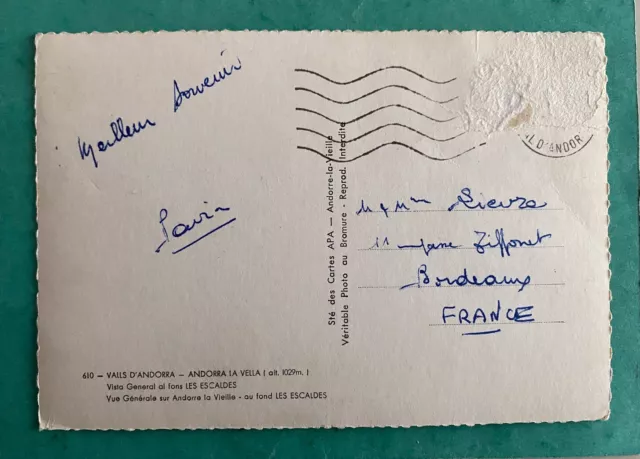 Meilleur Souvenir
610 — VALLS D'ANDORRA — ANDORRA LA VELLA ( alt. 1029m. )
Vista General al fons LES ESCALDES
Vue Générale sur Andorre la Vieille - au fond LES ESCALDES
Sté des Cartes APA — Andorre-la-Vieille
Véritable Photo au Bromure - Reprod. Interdite
D'ANDOR
M & Mme
11
Bordeaux
FRANCE